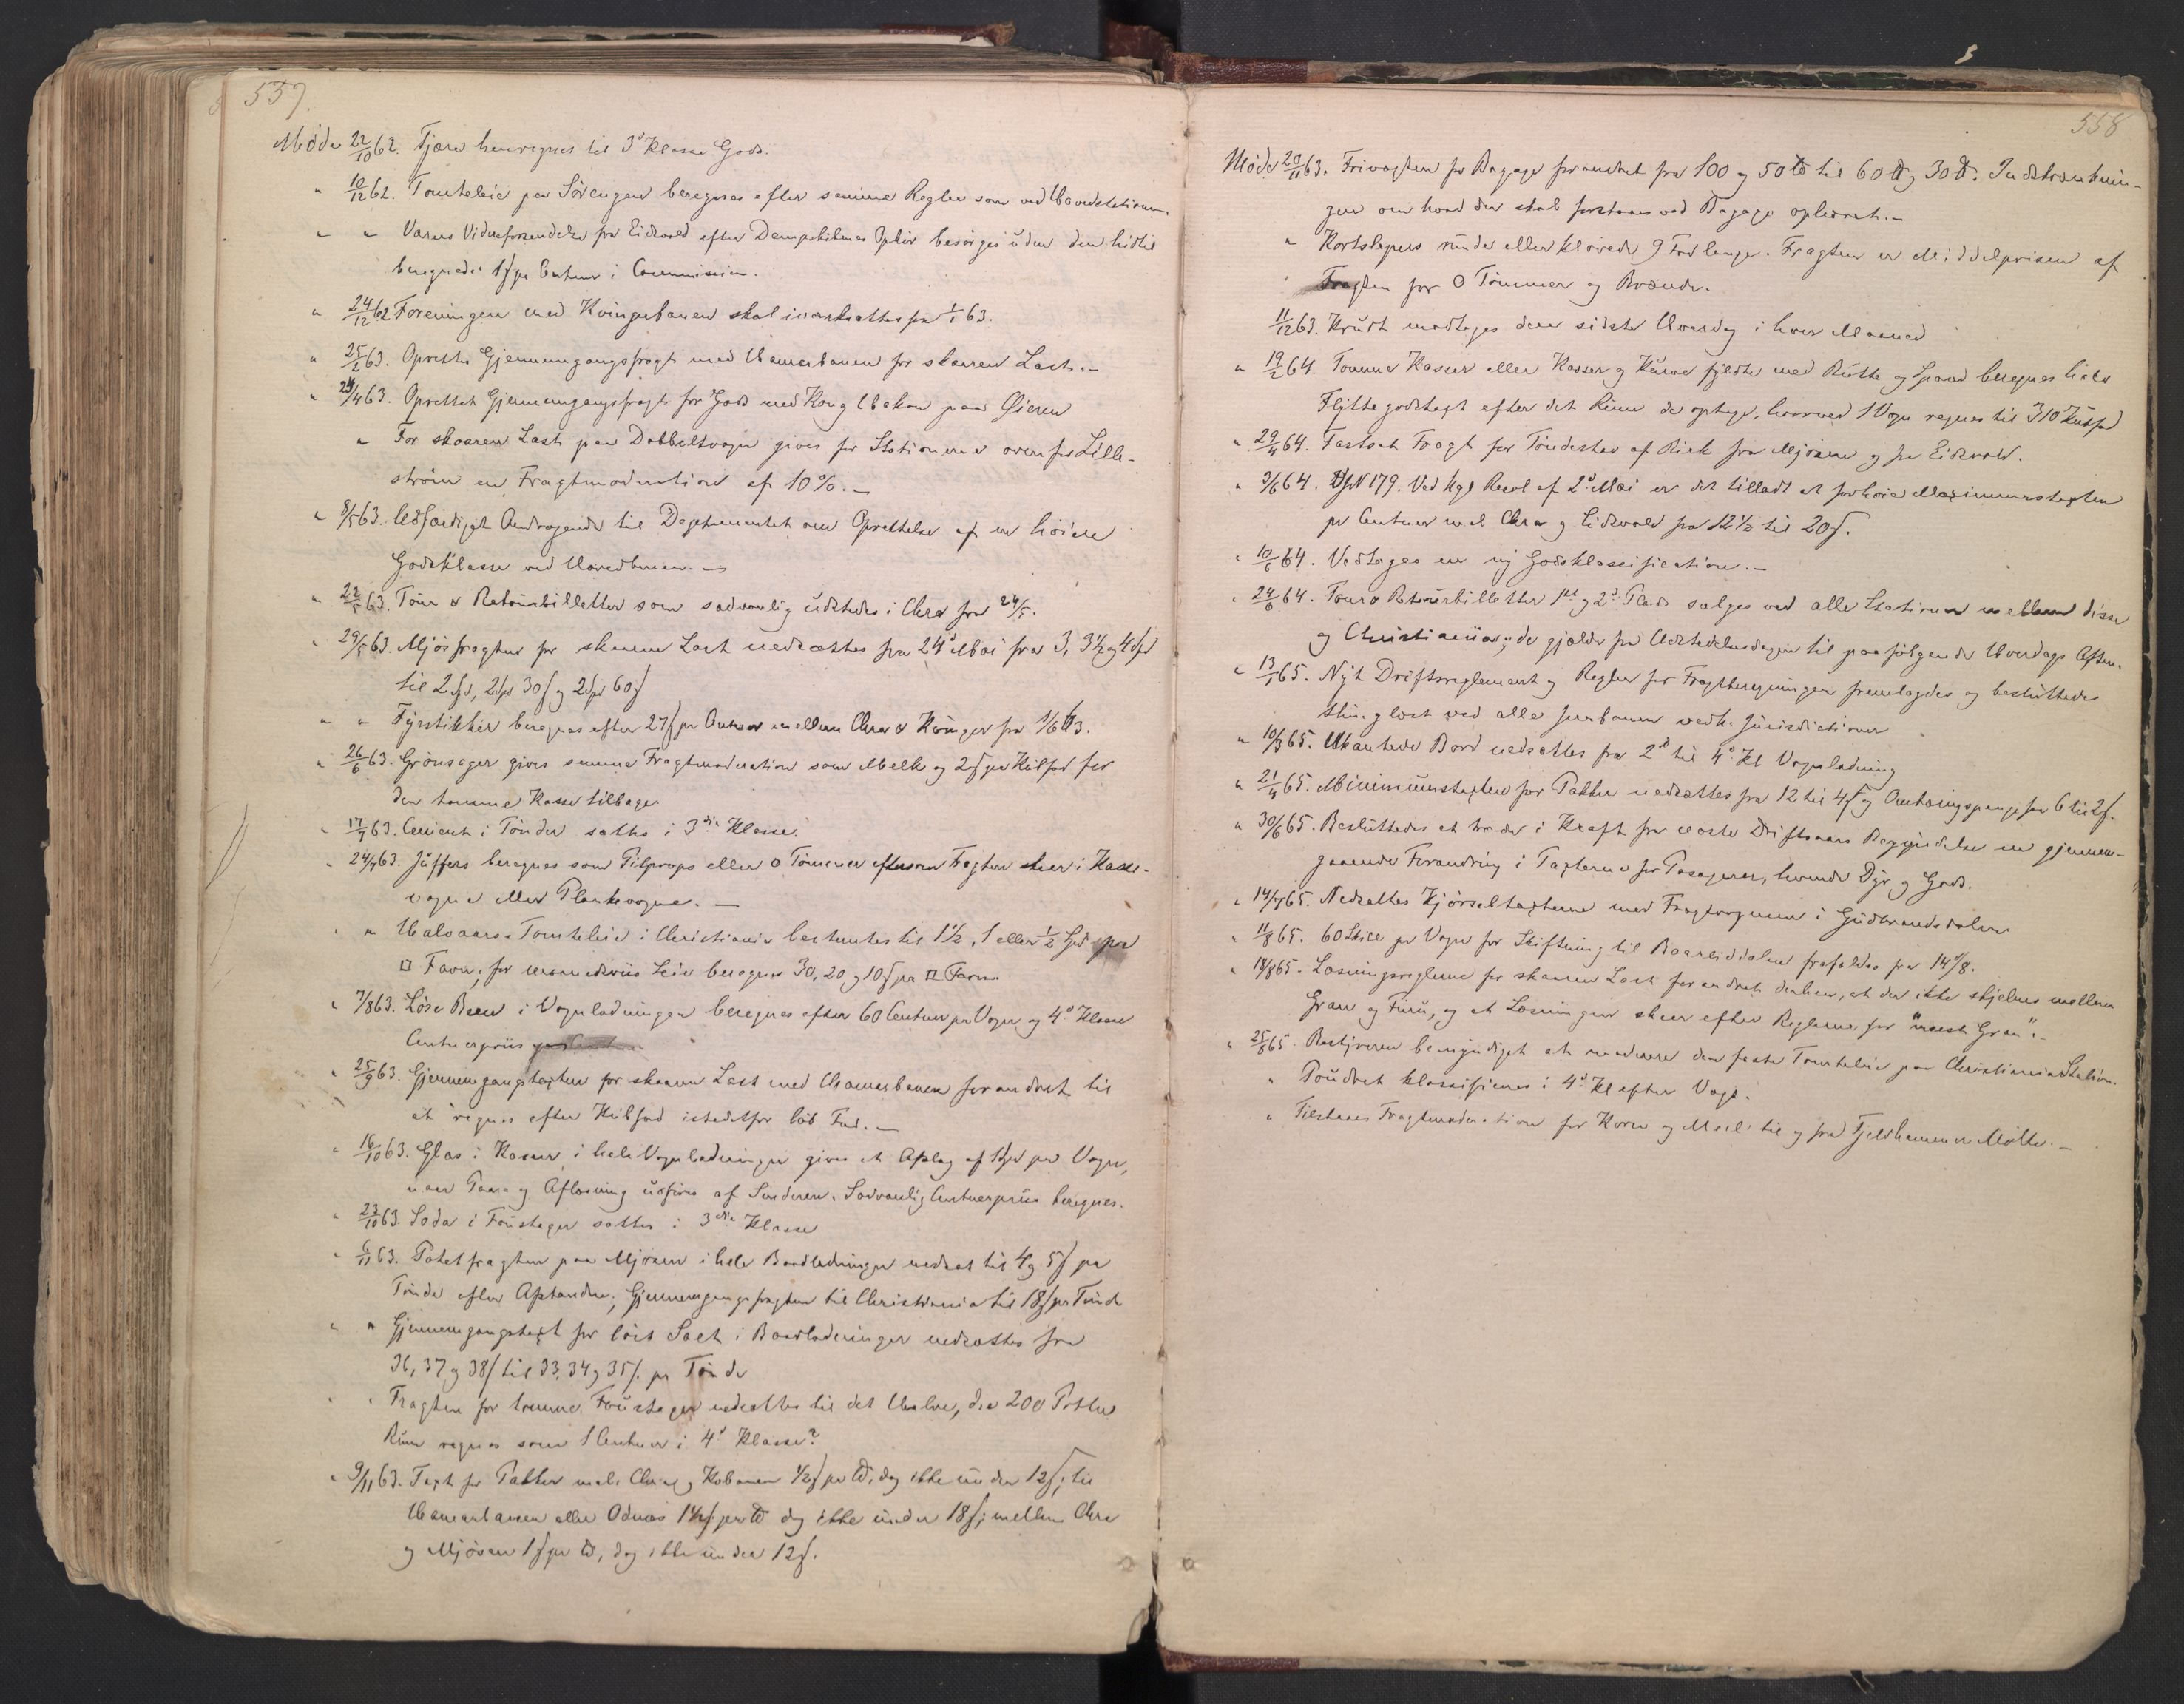 557.
Møde 22/10 62. Tjære henregnes til 3d Klasse Gods.
" 10/12 62. Tomteleie paa Sørengen beregnes efter samme Regler som ved Hovedstationen.
" " Varers Videreforsendelse fra Eidsvold efter Dampskibenes Ophør besørges uden den hidtil
beregnede 1ſ pr Centner i Commission.
" 24/12 62 Foreningen med Kongsv.banen skal iværksættes fra 1/1 63.
" 25/2 63. Oprettes Gjennemgangsfragt med Hamarbanen for skaaren Last. –
" 24/4 63. Oprettet Gjennemgangsfragt for Gods med Kong Hakon paa Øieren
" For skaaren Last paa Dobbeltvogn gives for Stationerne ovenfor Lille-
strøm en Fragtmoderation af 10%. –
" 8/5 63. Udfærdiget Andragende til Departementet om Oprettelse af en høiere
Godsklasse ved Hovedbanen. –
" 22/5 63. Tour & Retourbilletter som sædvanlig udstedes i Chra fra 24/5.
" 29/5 63. Mjøsfragten for skaaren Last nedsættes fra 24d Mai fra 3, 3½ og 4 Spd
til 2 Spd, 2 Spd 30ſ og 2 Spd 60ſ
" " Fyrstikker beregnes efter 27ſ pr Centner mellem Chra & Kongsv. fra 1/6 63.
" 26/6 63. Grønsager gives samme Fragtmoderation som Melk og 2ſ per Kubfod for
den tomme Kasse tilbage.
" 17/7 63. Cement i Tønder sættes i 3die Klasse.
" 24/7 63. Juffers beregnes som Pitprops eller o Tømmer eftersom Fragten skeer i Kasse-
vogne eller Plankevogne. –
" " Halvaars Tomteleie i Christiania bestemtes til 1½, 1 eller ½ Spd pr
□ Favn; for maanedsviis Leie beregnes 30, 20 og 10ſ pr □ Favn.
" 7/8 63. Løse Been i Vognladninger beregnes efter 60 Centner pr Vogn og 4d Klasse
Centnerpriis
" 25/9 63. Gjennemgangstaxten for skaaren Last med Hamarbanen forandret til
at regnes efter Kubfod istedetfor løb Fod. –
" 16/10 63. Glas i Kasser i hele Vognladninger gives et Afslag af 1 Spd pr Vogn,
naar Paa- og Aflæsning udføres af Senderen. Sædvanlig Centnerpriis beregnes.
" 23/10 63. Soda i Foustager sættes i 3die Klasse
" 6/11 63. Potetfragten paa Mjøsen i hele Baadladninger nedsat til 4 og 5ſ pr
Tønde efter Afstanden; Gjennemgangsfragten til Christiania til 18ſ pr Tønde
" " Gjennemgangstaxt for løst Salt i Baadladninger nedsættes fra
36, 37 og 38ſ til 33, 34 og 35ſ. pr Tønde
" " Fragten for tomme Foustager nedsættes til det Halve, d.e 200 Potter
Rum regnes som 1 Centner i 4d Klasse?
" 9/11 63. Taxt for Pakker mell. Chra og Kobanen ½ſ pr ℔, dog ikke under 12ſ; til
Hamarbanen eller Odnæs 1½ſ per ℔ dog ikke under 18ſ; mellem Chra
og Mjøsen 1ſ pr ℔, dog ikke under 12ſ.
558
Møde 20/11 63. Frivægten for Bagage forandret fra 100 og 50 ℔ til 60 ℔ og 30 ℔. Indskrænknin-
gen om hvad der skal forstaaes ved Bagage ophævet. –
" Kortslepers runde eller kløvede 9 Fod lange. Fragten er Middelprisen af
Fragten for o Tømmer og Brænde.
11/12 63. Krudt modtages den sidste Hverdag i hver Maaned
" 19/2 64. Tomme Kasser eller Kasser og Kurve fyldte med Potte og Spaad beregnes heel
Flyttegodstaxt efter det Rum de optage, hvorved 1 Vogn regnes til 310 Kubfod
" 29/4 64. Fastsat Fragt for Tøndestav af Birk fra Mjøsen og fra Eidsvold.
" 3/6 64. No 179. Ved kgl Resol af 2d Mai er det tilladt at forhøie Maximumstaxten
pr Centner mel Chra og Eidsvold fra 12½ til 20ſ.
" 10/6 64. Vedtages en ny Godsklassification. –
" 24/6 64. Tour & Retourbilletter 1ste og 2d Plads sælges ved alle Stationer mellem disse
og Christiania; de gjælde fra Udstedelsesdagen til paafølgende Hverdags Aften.
" 13/1 65. Nyt Driftsreglement og Regler for Fragtberegninger fremlagdes og besluttedes
thinglæst ved alle Jernbanen vedk. Jurisdictioner
" 10/3 65. Ukantede Bord nedsættes fra 2d til 4d Kl Vognladning
" 21/4 65. Minimumstaxten for Pakker nedsættes fra 12 til 4ſ og Ombringspenge fra 6 til 2ſ.
" 30/6 65. Besluttedes at træde i Kraft fra næste Driftsaars Begyndelse en gjennem-
gaaende Forandring i Taxterne for Passagerer, levende Dyr og Gods.
" 14/7 65. Nedsattes Kjørseltaxterne med Fragtvognene i Gudbrandsdalen
" 11/8 65. 60 Skill pr Vogn for Skiftning til Baardiddalen frafaldes fra 14d/8.
" 18/8 65. Læsningsreglerne for skaaren Last forandret derhen, at der ikke skjelnes mellem
Gran og Furu, og at Læsningen skeer efter Reglerne for "meest Gran". –
" 25/8 65. Bestyreren bemyndiget at moderere den faste Tomteleie paa Christiania Station.
" Poudret klassificeres i 4d Kl efter Vægt.
" Tilstaaes Fragtmoderation for Korn og Meel til og fra Fjeldhammer Mølle. –